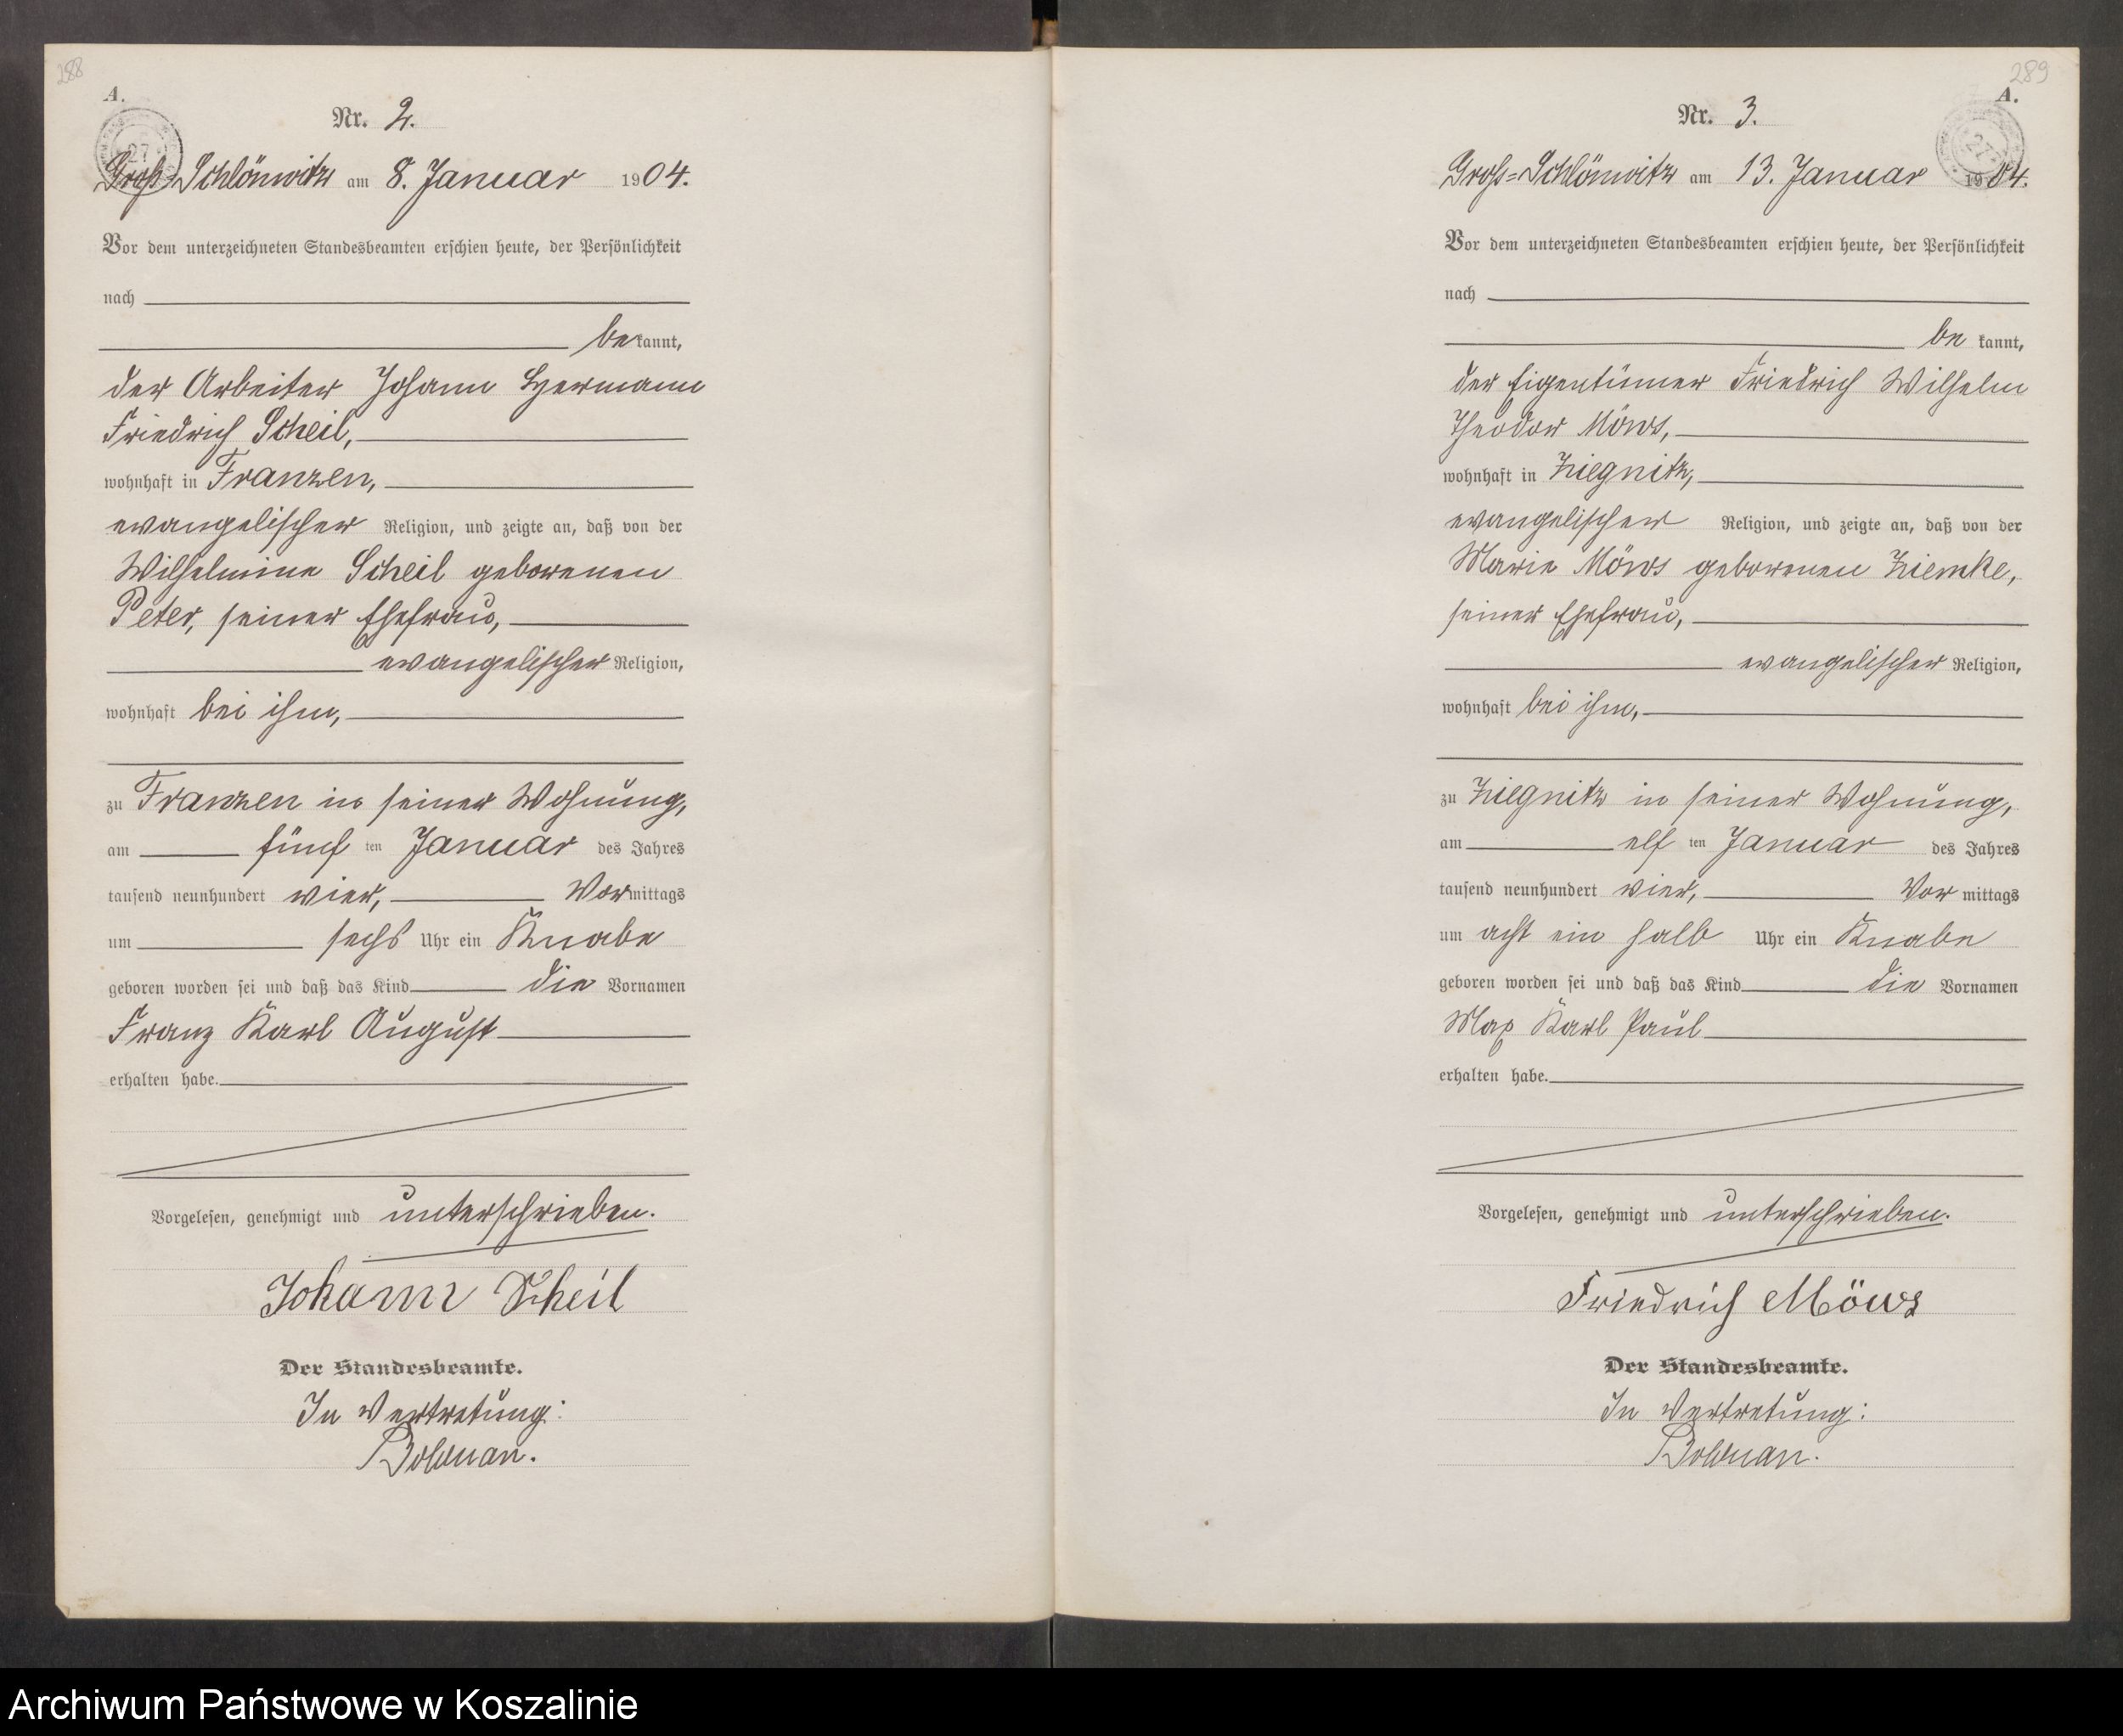 288
A.
Nr. 2.
27
Groß-Schlönwitz am 8. Januar 1904.
Vor dem unterzeichneten Standesbeamten erschien heute, der Persönlichkeit
nach
bekannt,
der Arbeiter Johann Hermann
Friedrich Scheil,
wohnhaft in Franzen,
evangelischer Religion, und zeigte an, daß von der
Wilhelmine Scheil geborenen
Peter, seiner Ehefrau,
evangelischer Religion,
wohnhaft bei ihm,
zu Franzen in seiner Wohnung,
am fünf ten Januar des Jahres
tausend neunhundert vier, Vormittags
um sechs Uhr ein Knabe
geboren worden sei und daß das Kind die Vornamen
Franz Karl August
erhalten habe.
Vorgelesen, genehmigt und unterschrieben.
Johann Scheil
Der Standesbeamte.
In Vertretung:
289
A.
Nr. 3.
27
Groß-Schlönwitz am 13. Januar 1904.
Vor dem unterzeichneten Standesbeamten erschien heute, der Persönlichkeit
nach
be kannt,
der Eigentümer Friedrich Wilhelm
Theodor Möws,
wohnhaft in Ziegnitz,
evangelischer Religion, und zeigte an, daß von der
Marie Möws geborenen Ziemke,
seiner Ehefrau,
evangelischer Religion,
wohnhaft bei ihm,
zu Ziegnitz in seiner Wohnung,
am elf ten Januar des Jahres
tausend neunhundert vier, Vor mittags
um acht ein halb Uhr ein Knabe
geboren worden sei und daß das Kind die Vornamen
Max Karl Paul
erhalten habe.
Vorgelesen, genehmigt und unterschrieben.
Friedrich Möws
Der Standesbeamte.
In Vertretung:
Archiwum Państwowe w Koszalinie